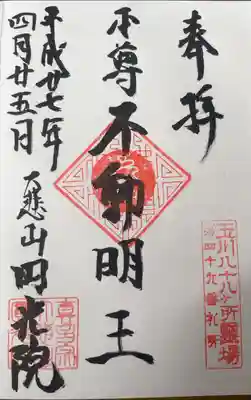 奉拝
玉川八十八ヶ所霊場
第四十九番札所
本尊不動明王
平成廿七年
四月廿五日
山円光院